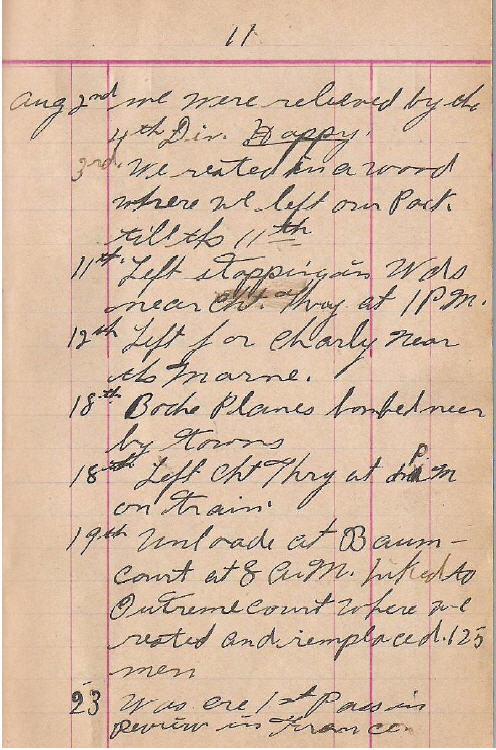 11
Aug 2nd we were relieved by the
4th Div. Happy.
3rd. We rested in a wood
where we left our Pack
till the 11th
11th. Left stopping in Wds
near Cht. Thry at 1 P.M.
12th Left for Charly near
the Marne.
18th Boche Planes bombed near
by towns
18th Left Cht Thry at P.M
on train.
19th Unloade at Baum-
court at 8 A.M. hiked to
Outremecourt where we
rested and remplaced. 125
men
23 Was ere 1st Pass in
Review in France.